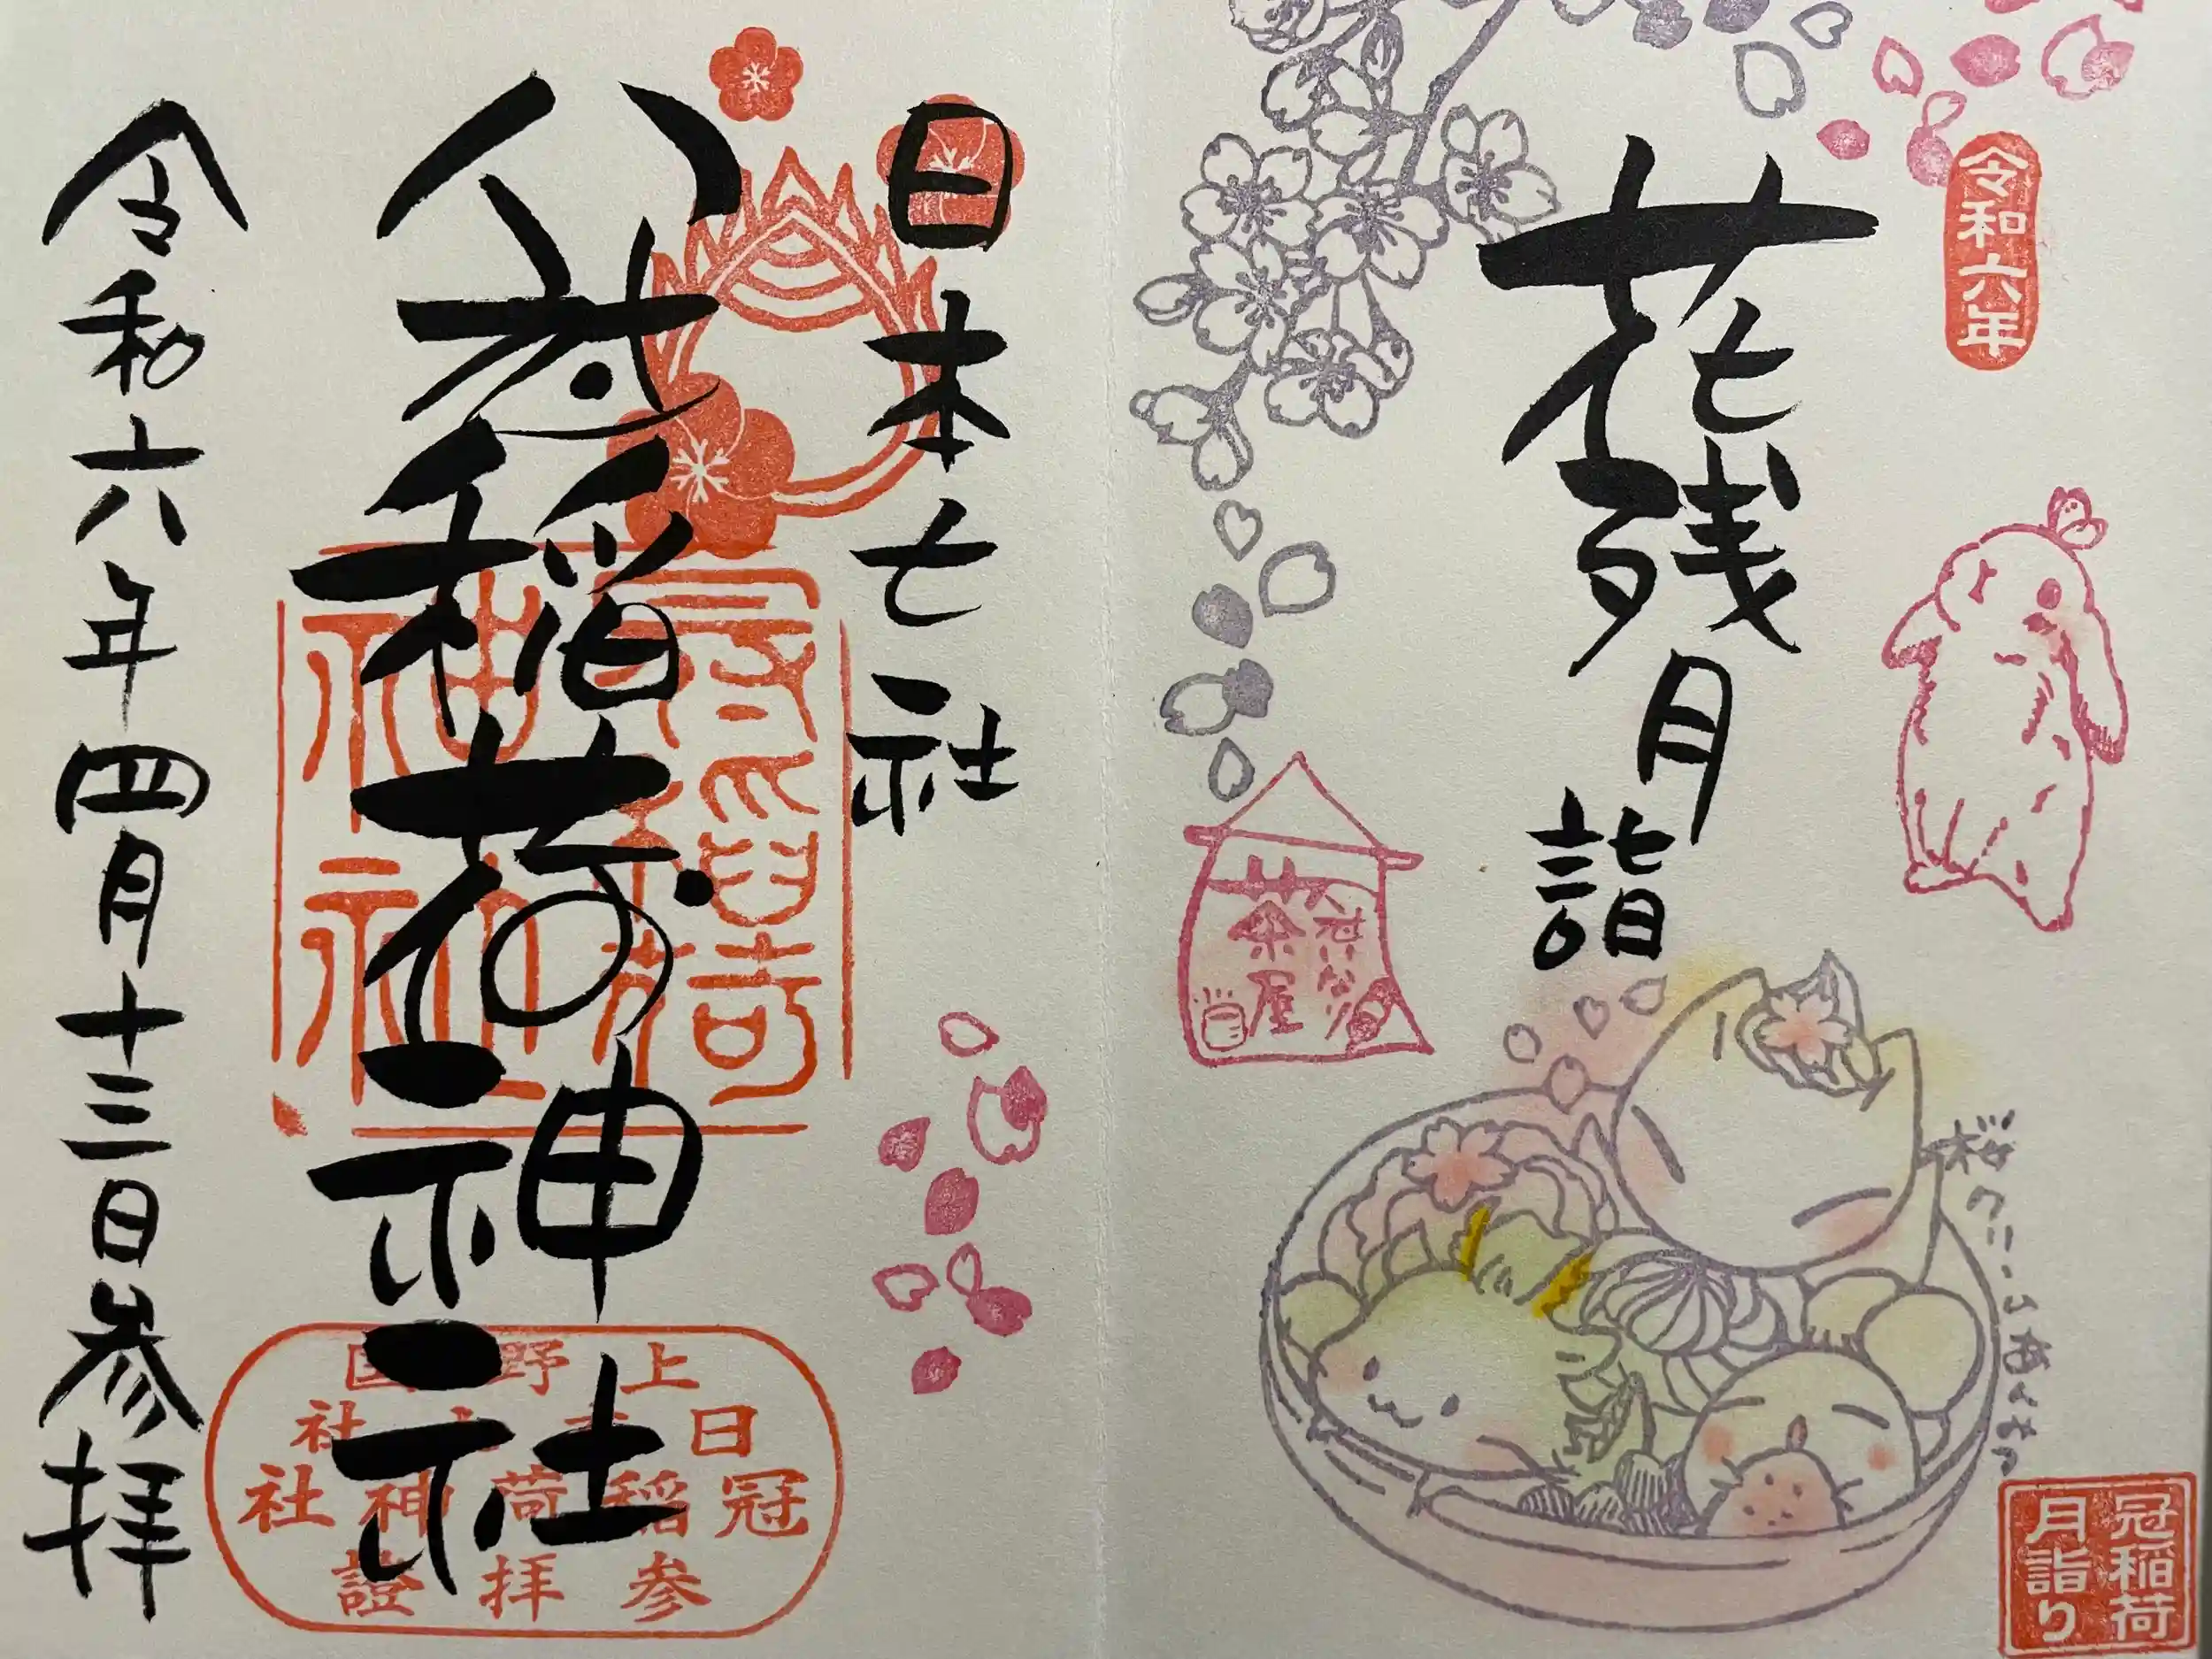 令和六年
花残月詣
葉公茶屋
桜クリームあんみつ
冠稲荷
月詣り
日本七社
冠稲荷神社
冠稲荷
神社
上野国
日本七社
冠稲荷神社
参拝證
令和六年四月十三日参拝